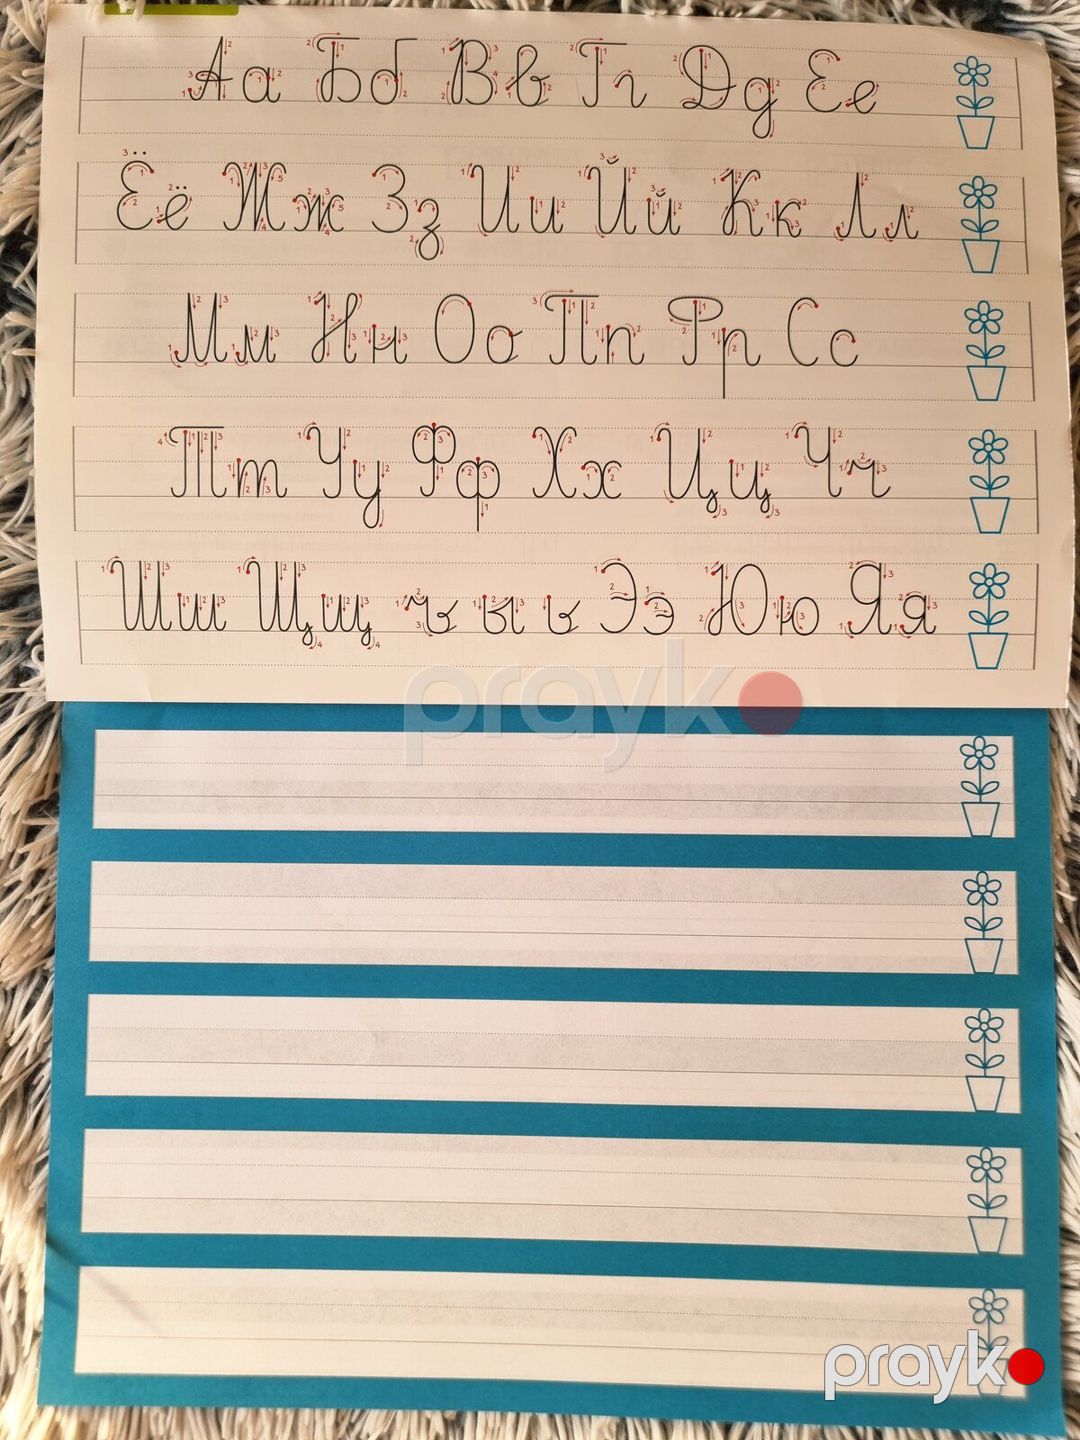 Аа Бб Вв Гг Дд Ее
Ёё Жж Зз Ии Йй Кк Лл
Мм Нн Оо Пп Рр Сс
Тт Уу Фф Хх Цц Чч
Шш Щщ ъ ы ь Ээ Юю Яя
prayk
prayk